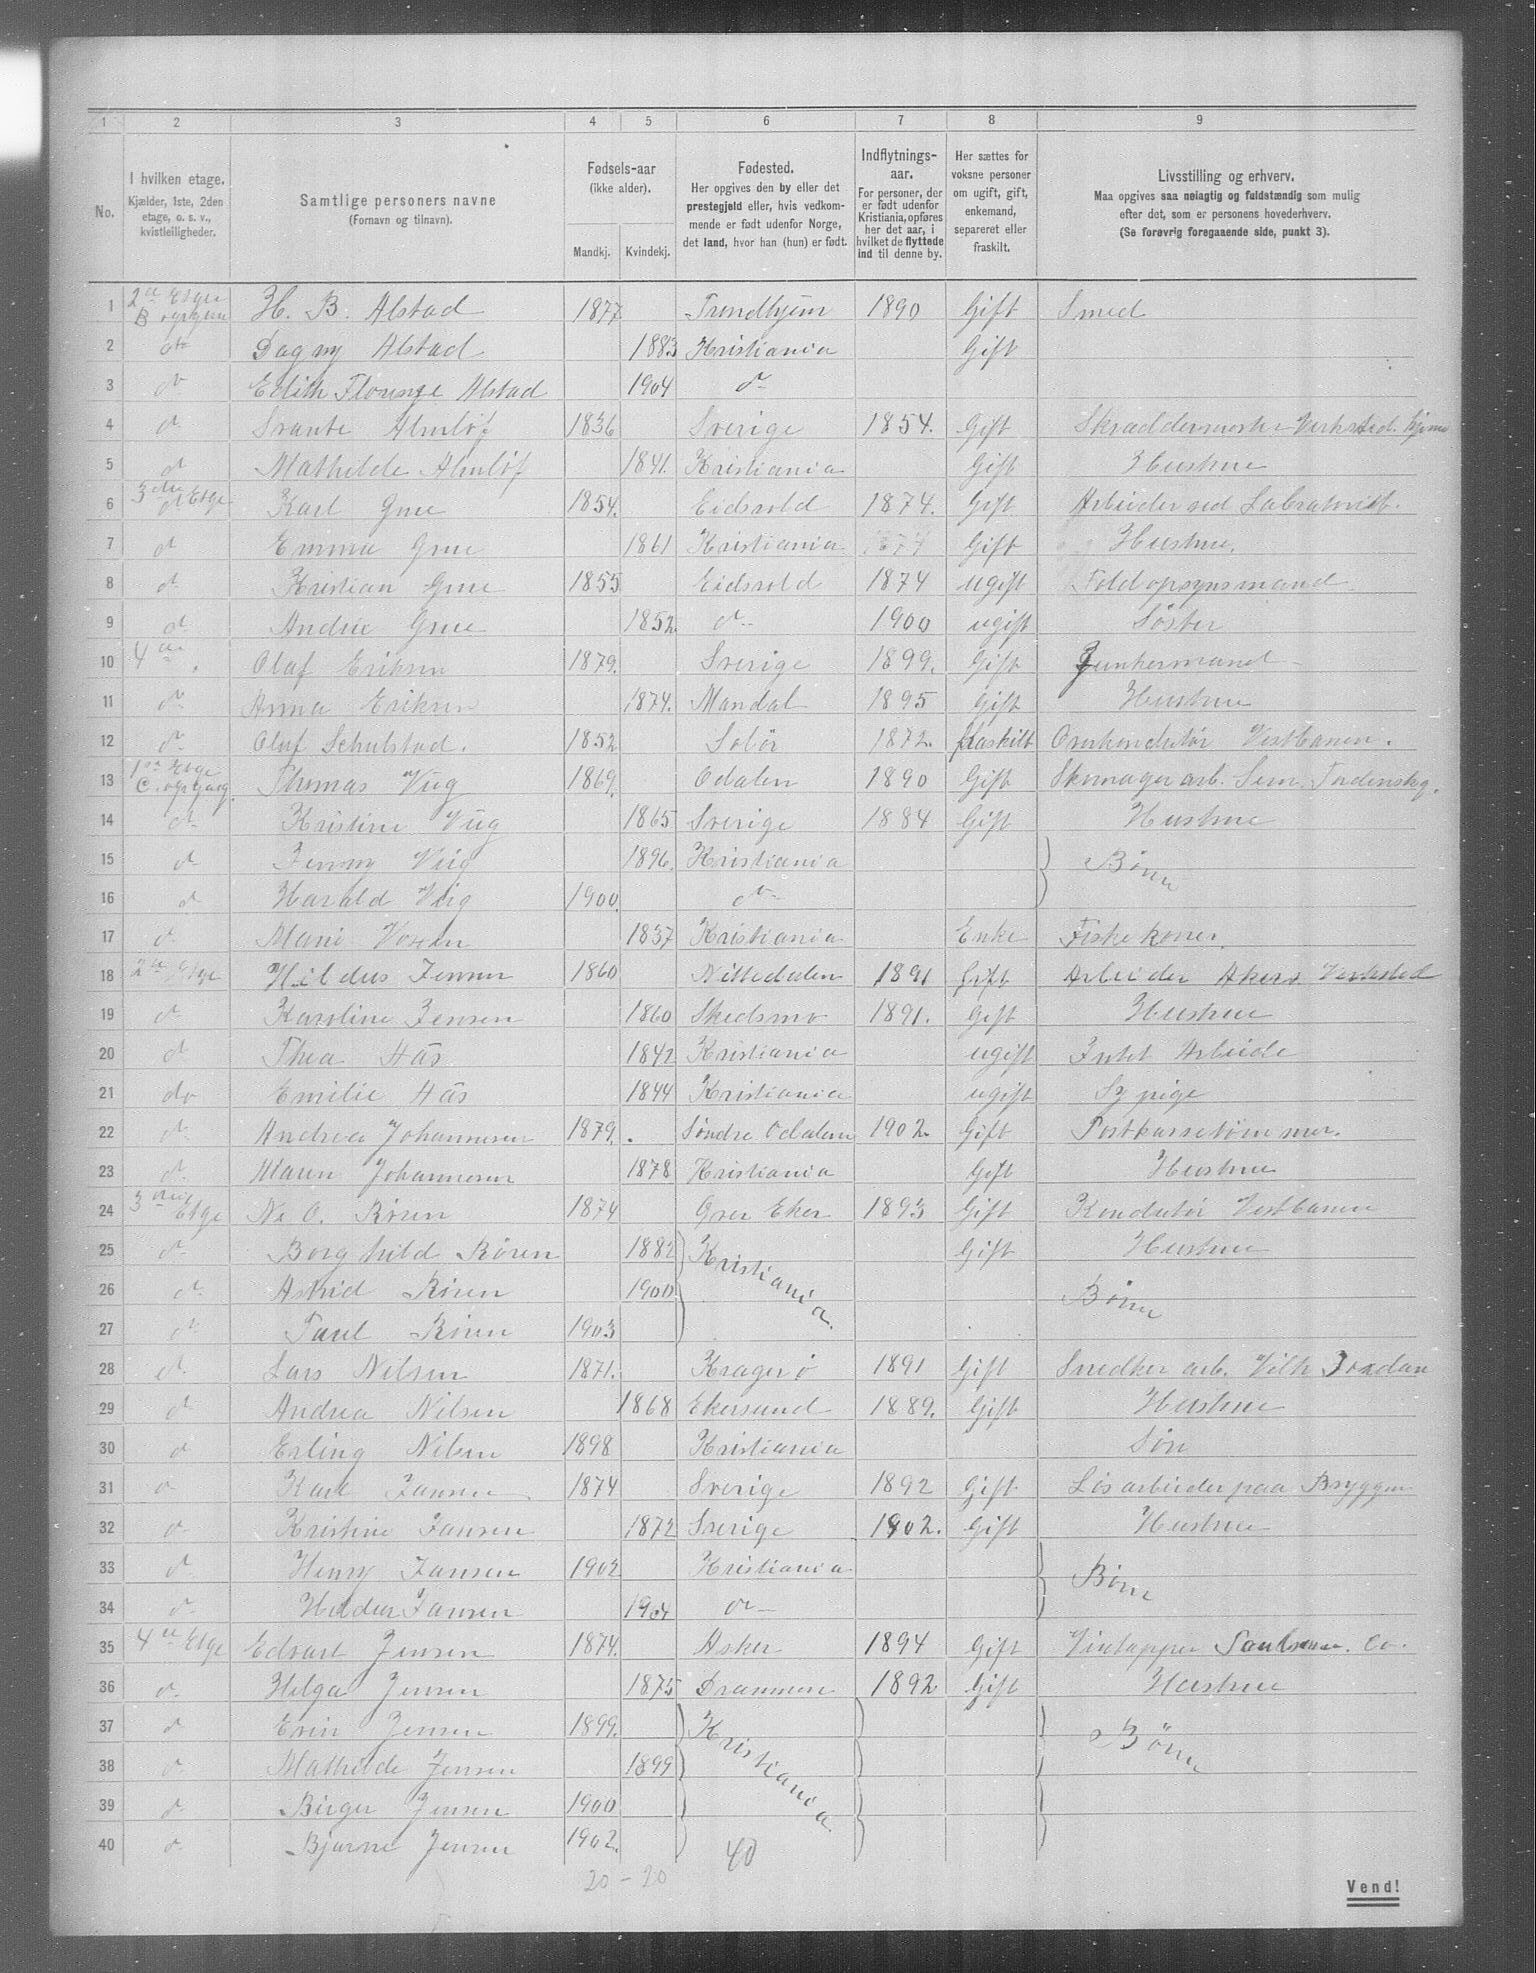 1 2 3 4 5 6 7 8 9
No.
I hvilken etage.
Kjælder, 1ste, 2den
etage, o. s. v.,
kvistleiligheder.
Samtlige personers navne
(Fornavn og tilnavn).
Fødsels-aar
(ikke alder).
Mandkj. Kvindekj.
Fødested.
Her opgives den by eller det
prestegjeld eller, hvis vedkom-
mende er født udenfor Norge,
det land, hvor han (hun) er født.
Indflytnings-
aar.
For personer, der
er født udenfor
Kristiania, opføres
her det aar, i
hvilket de flyttede
ind til denne by.
Her sættes for
voksne personer
om ugift, gift,
enkemand,
separeret eller
fraskilt.
Livsstilling og erhverv.
Maa opgives saa nøiagtig og fuldstændig som mulig
efter det, som er personens hovederhverv.
(Se forøvrig foregaaende side, punkt 3).
1 2den Etage B H. B. Alstad 1877 Trondhjem 1890 Gift Smed
2 do Dagny Alstad 1883 Kristiania Gift
3 do Edith Florense Alstad 1904 do
4 d Svante Almløf 1836 Sverige 1854. Gift Skreddermester Verksted hjeme
5 d Mathilde Almløf 1841. Kristiania Gift Hustrue
6 3die Etge Karl Grue 1854. Eidsvold 1874. Gift Arbeider ved
7 d Emma Grue 1861 Kristiania 1874 Gift Hustrue,
8 d Kristian Grue 1855 Eidsvold 1874 ugift Toldopsynsmand
9 d Andrie Grue 1852. do 1900 ugift Søster
10 4de Olaf Eriksen 1879. Sverige 1899. Gift
11 do Anna Eriksen 1874. Mandal 1895 Gift Hustrue
12 do Oluf Schulstad. 1852 Solør 1872. fraskilt Overkondutør Vestbanen.
13 1ste Etge C. Thomas Viig 1869. Odalen 1890 Gift Skomagerarb. Tordenskg.
14 do Kristine Viig 1865 Sverige 1884 Gift Hustrue
15 d Jenny Viig 1896. Kristiania Børn
16 d Harald Viig 1900. do
17 d Marie 1837 Kristiania Enke Fiskekoner.
18 2den Etge Hildus Jensen 1860 Nittedalen 1891 Gift Arbeider Akers Verksted
19 d Karoline Jensen 1860 Skedsmo 1891. Gift Hustrue
20 d Thea Hås 1842 Kristiania ugift Intet Arbeide
21 do Emilie Hås 1844 Kristiania ugift Sypige
22 d Andrea Johannesen 1879. Søndre Odalen 1902. Gift Postkassetømmer.
23 d Maren Johannesen 1878 Kristiania Gift Hustrue
24 3die Etge N. O. Røren 1874 Øvre Eker 1893 Gift Kondutør Vestbanen
25 d Borghild Røren 1882 Kristiania Gift Hustrue
26 d Astrid Røren 1900 Børn
27 d Paul Røren 1903
28 d Lars Nilsen 1871. Kragerø 1891 Gift Snedker arb. Vilh Jordan
29 d Andrea Nilsen 1868 Ekersund 1889. Gift Hustrue
30 d Erling Nilsen 1898 Kristiania Søn
31 d Karl Jansen 1874 Sverige 1892 Gift Løsarbeider paa Bryggen
32 d Kristine Jansen 1872 Sverige 1902. Gift Hustrue
33 d Henry Jansen 1902 Kristiania Børn
34 d Jansen 1904 do
35 4de Etge Edvart Jensen 1874. Asker 1894 Gift Vintapper Co.
36 d Helga Jensen 1875 Drammen 1892 Gift Hustrue
37 d Jensen 1899. Kristiania Børn
38 d Mathilde Jensen 1899
39 d Birger Jensen 1900
40 d Bjarne Jensen 1902.
20 - 20
40
Vend!